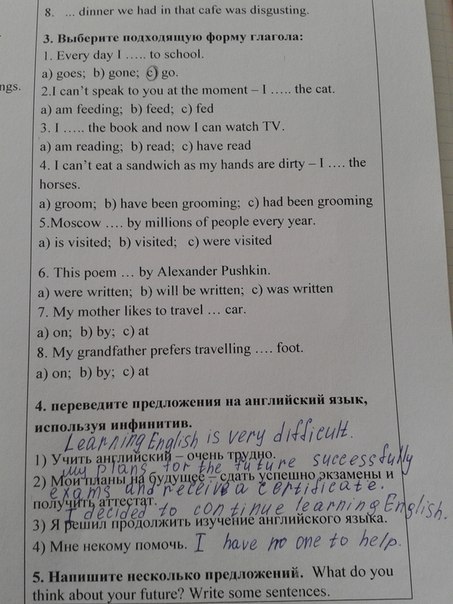 8. ... dinner we had in that cafe was disgusting.
3. Выберите подходящую форму глагола:
1. Every day I ….. to school.
a) goes; b) gone; c) go.
ngs.
2.I can't speak to you at the moment – I ….. the cat.
a) am feeding; b) feed; c) fed
3. I ….. the book and now I can watch TV.
a) am reading; b) read; c) have read
4. I can't eat a sandwich as my hands are dirty – I …. the
horses.
a) groom; b) have been grooming; c) had been grooming
5.Moscow …. by millions of people every year.
a) is visited; b) visited; c) were visited
6. This poem … by Alexander Pushkin.
a) were written; b) will be written; c) was written
7. My mother likes to travel … car.
a) on; b) by; c) at
8. My grandfather prefers travelling …. foot.
a) on; b) by; c) at
4. переведите предложения на английский язык,
используя инфинитив.
Learning English is very difficult.
1) Учить английский – очень трудно.
my plans for the future successfully
2) Мои планы на будущее – сдать успешно экзамены и
exams and receive a certificate.
получить аттестат.
I decided to continue learning English.
3) Я решил продолжить изучение английского языка.
4) Мне некому помочь. I have no one to help.
5. Напишите несколько предложений. What do you
think about your future? Write some sentences.